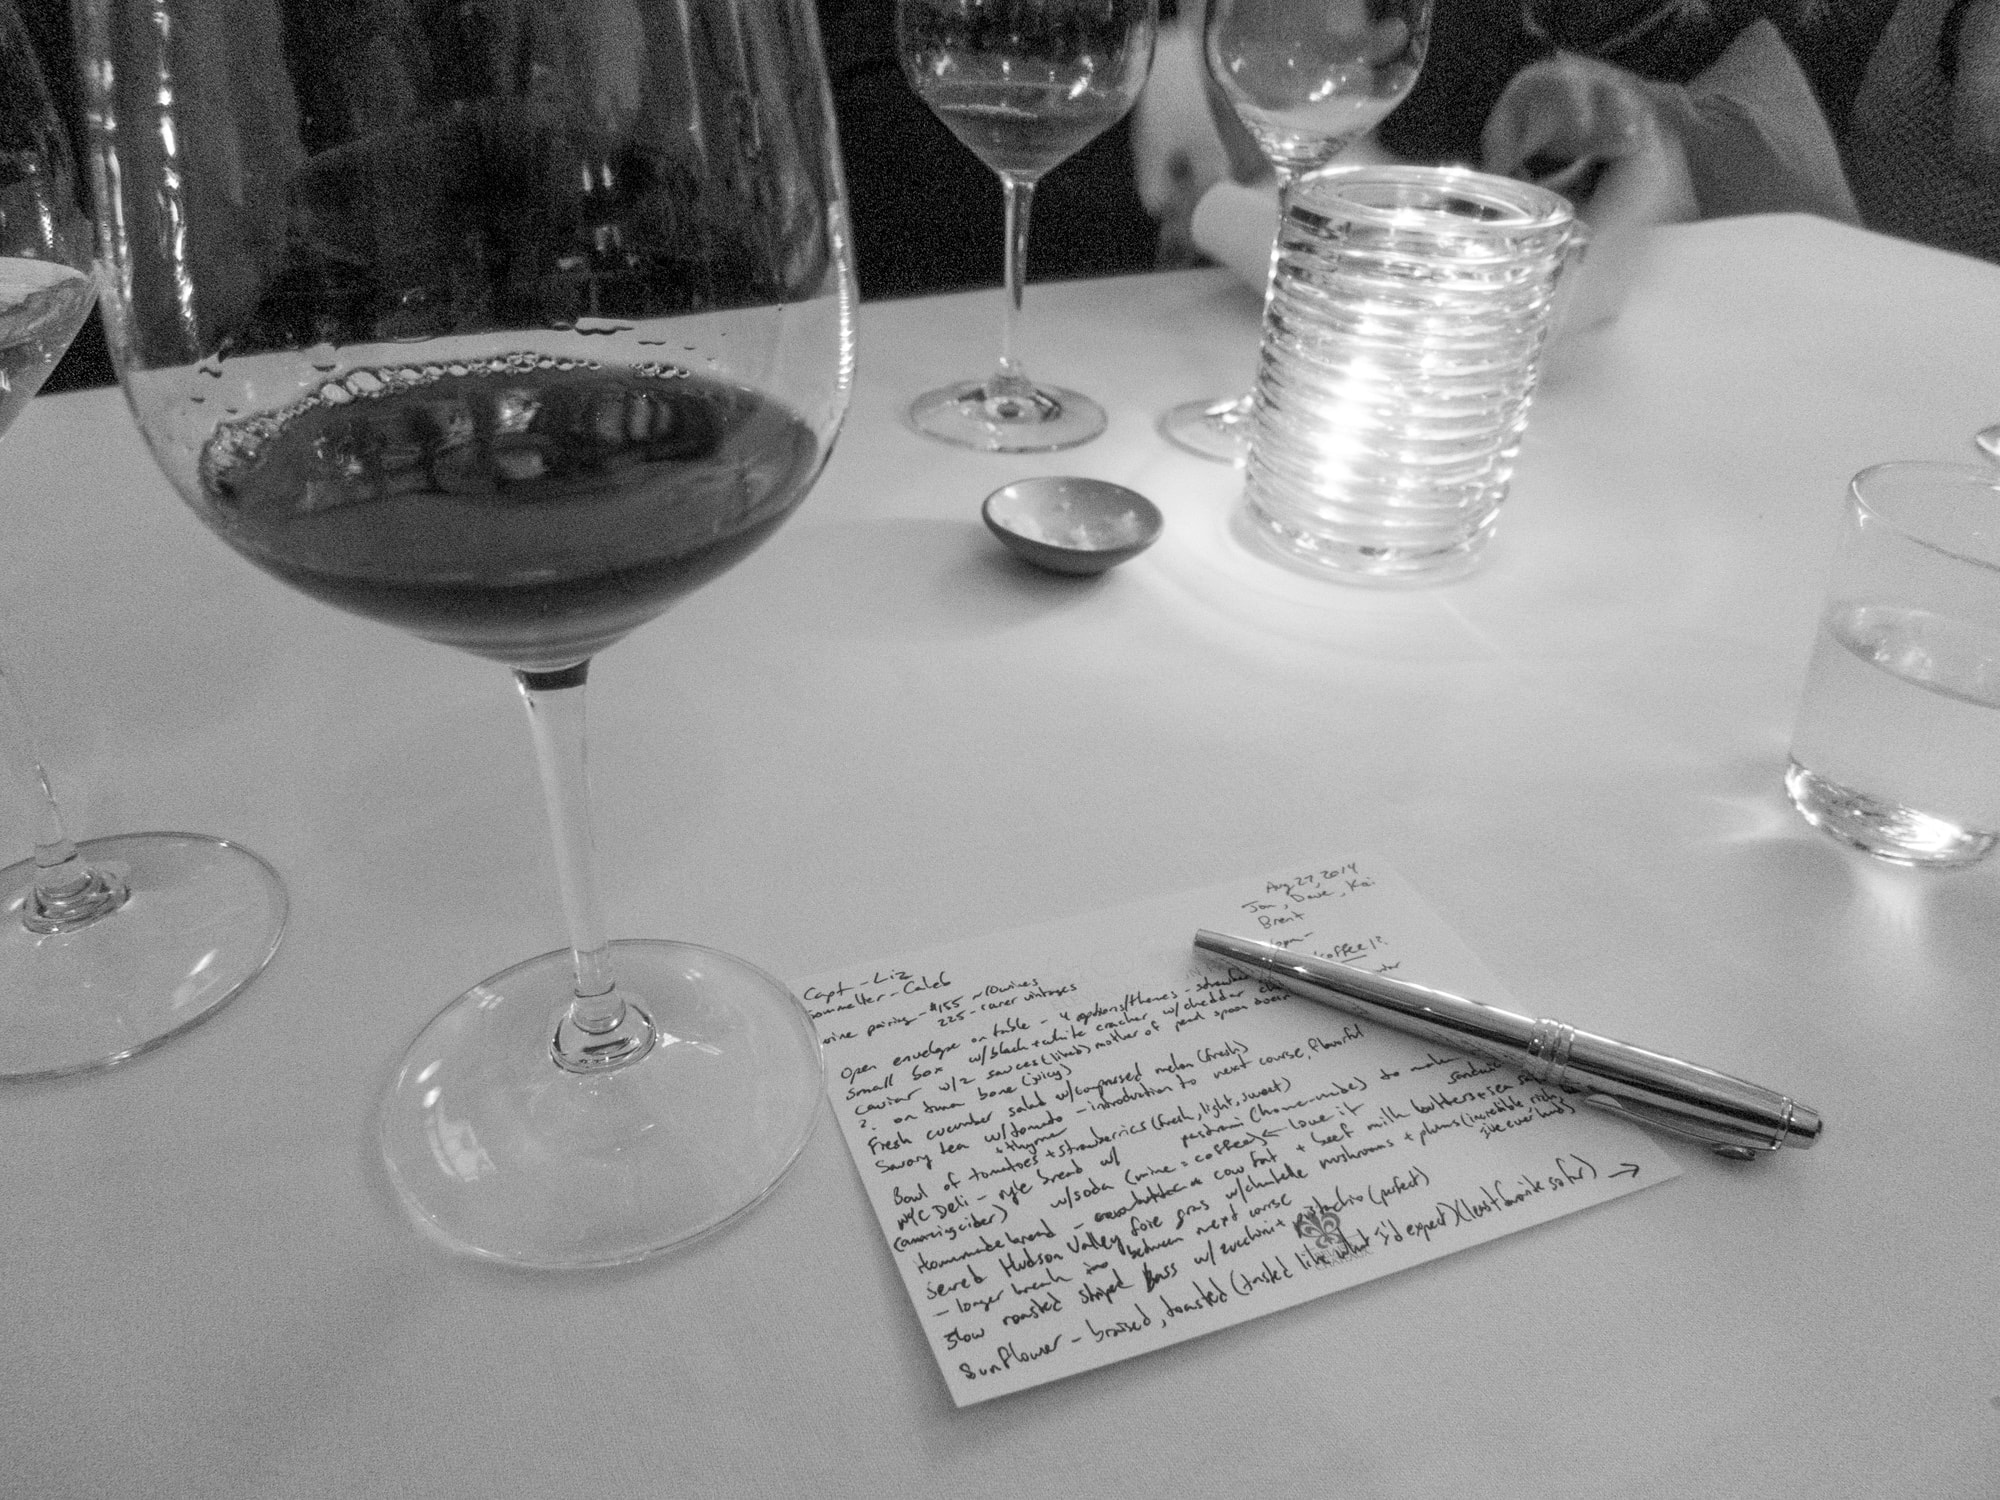 Aug 27, 2014
Jon, Dave, Kai
Brent
coffee!?
Capt - Liz
Sommelier - Caleb
wine pairing - $155 ~10 wines
225 - rarer vintages
Open envelope on table - 4 options/themes -
Small box w/black + white cracker w/cheddar
Caviar w/2 sauces (liked) mother of pearl spoon
?. on tuna bone (juicy)
Fresh cucumber salad w/compressed melon (fresh)
Savory tea w/tomato - introduction to next course, flavorful
+ thyme
Bowl of tomatoes + strawberries (fresh, light, sweet)
NYC Deli - rye bread w/ pastrami (home-made) to make
sandwich
(amazing cider) w/soda (mine = coffee) ← love it
Homemade bread - cow fat + beef milk butters + sea
Seared Hudson Valley foie gras w/ mushrooms + plums (incredible rich,
I've ever had)
- longer break between next course
Slow roasted striped Bass w/ zucchini + pistachio (perfect)
Sunflower - braised, toasted (tasted like what I'd expect) (least favorite so far) →